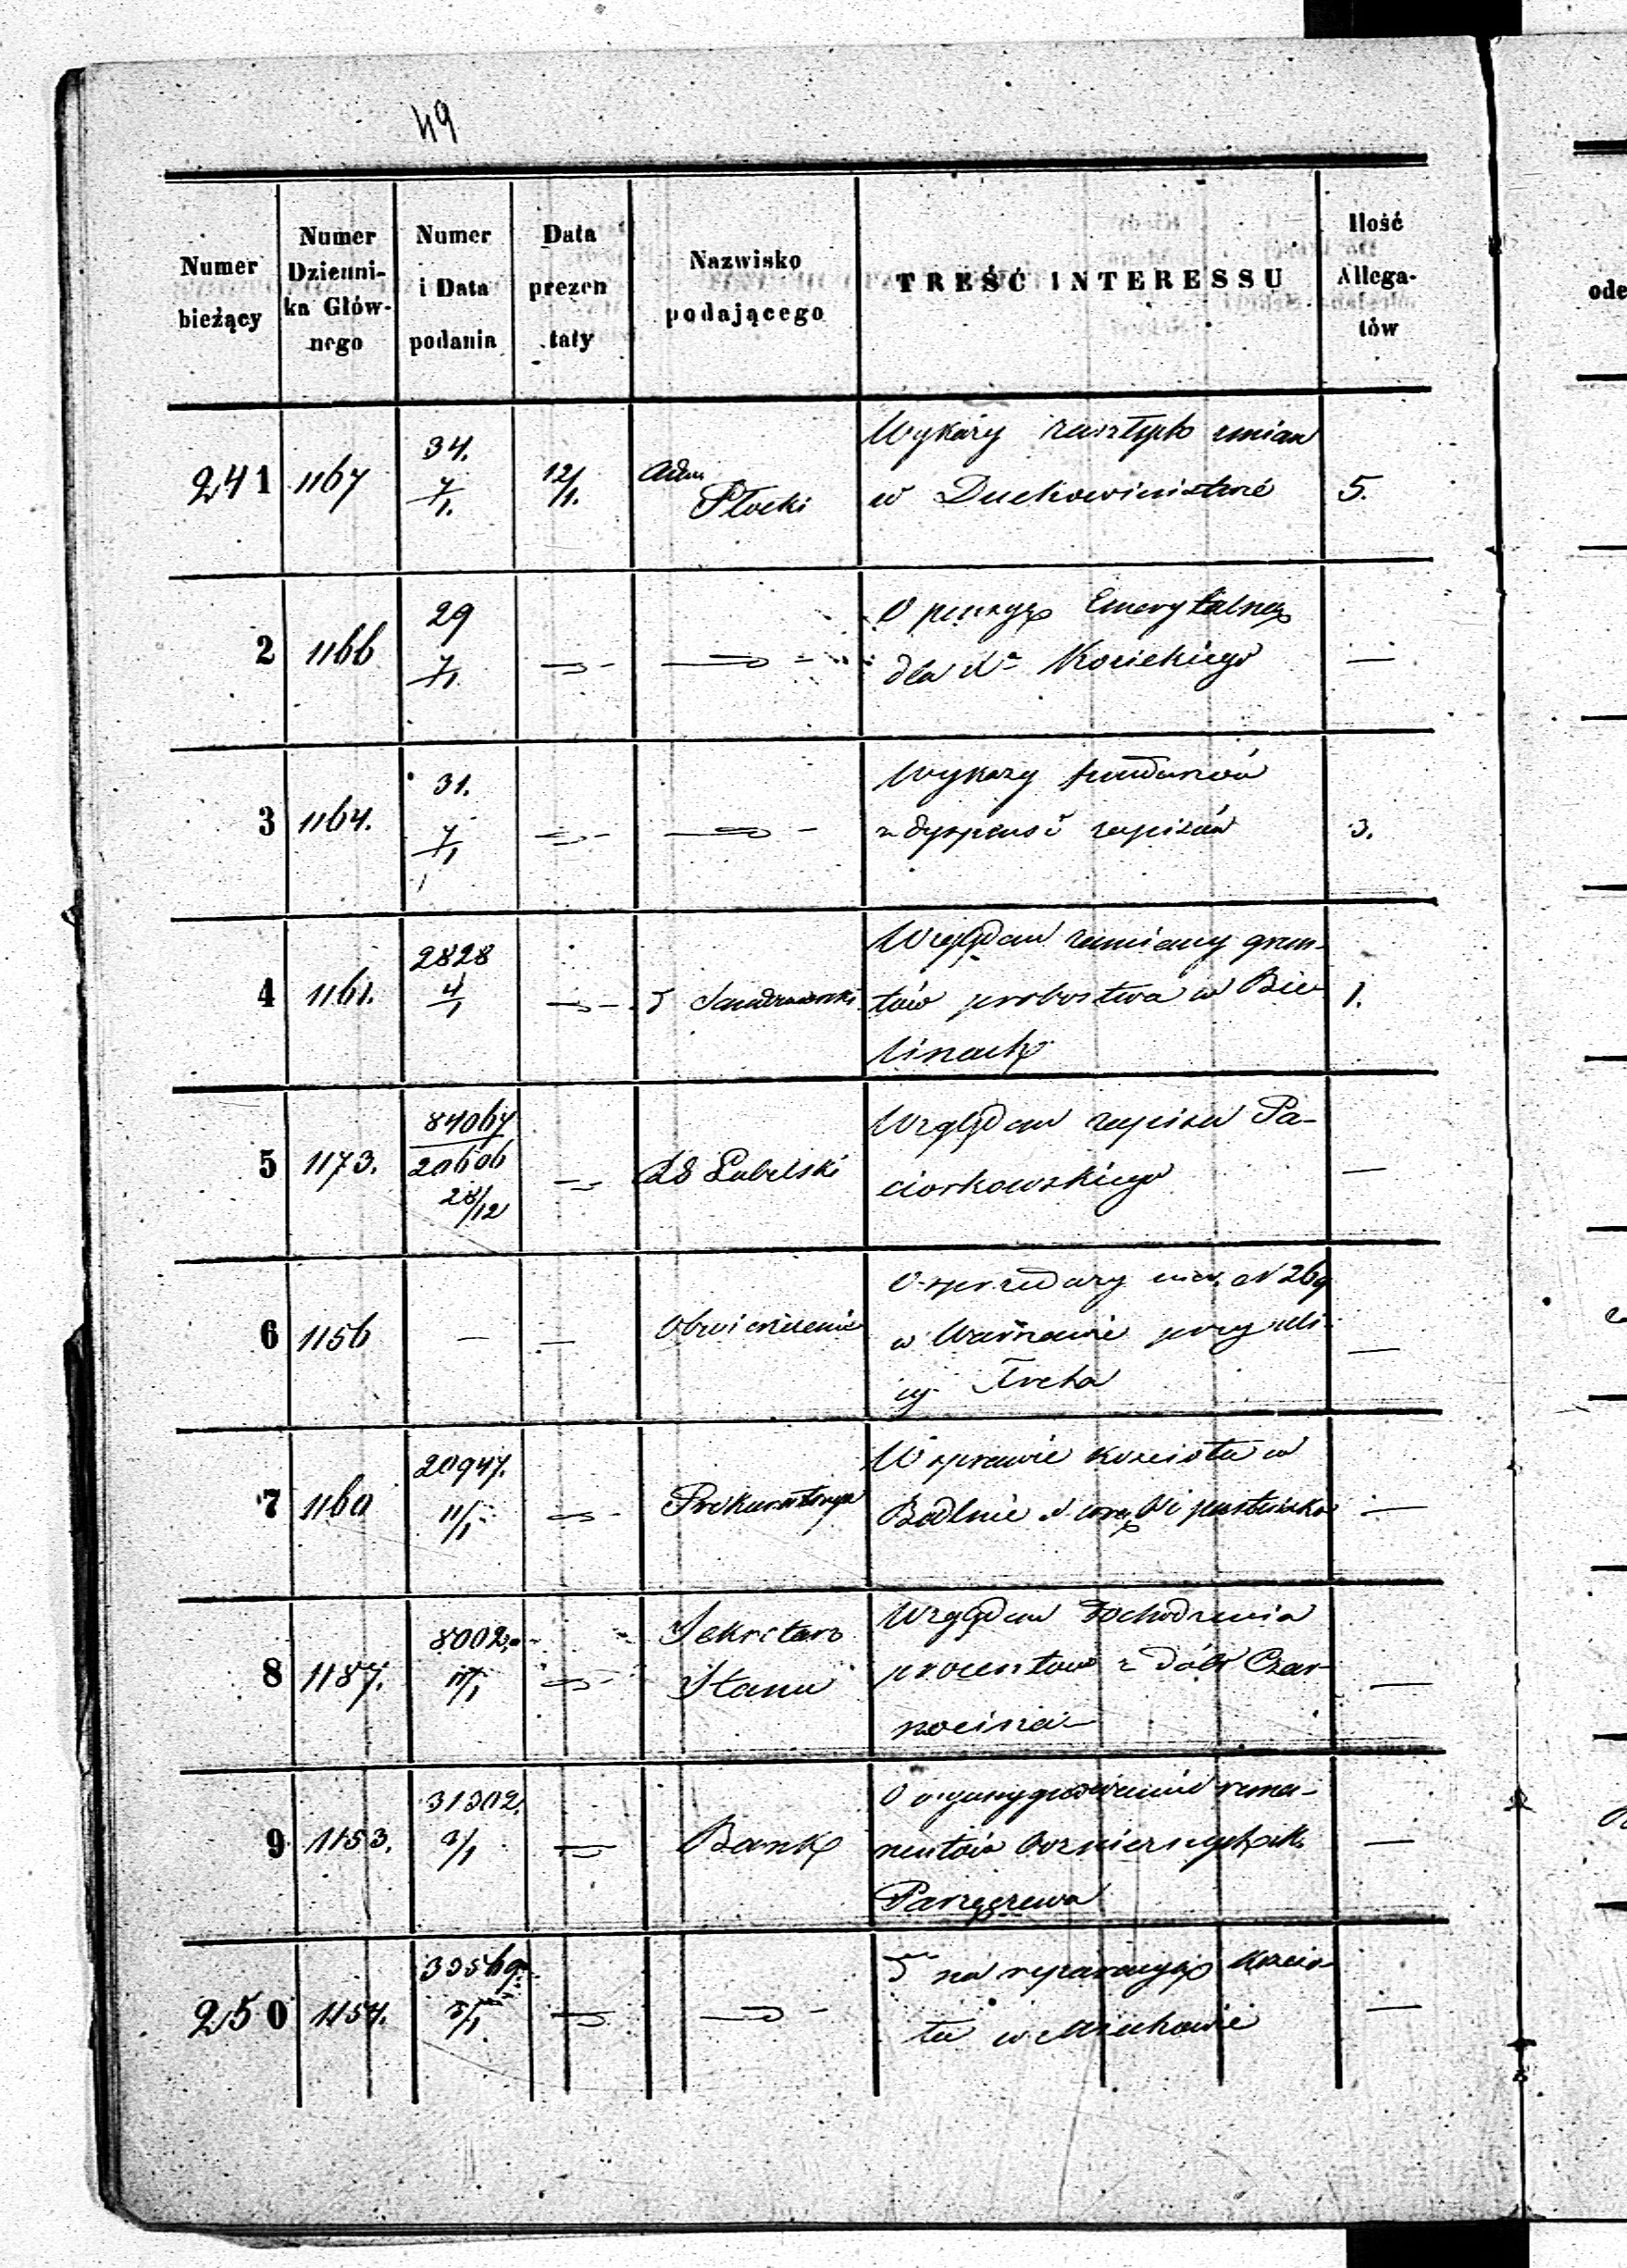 49
Numer bieżący
Numer Dzienni-ka Głów-nego
Numer i Data podania
Data prezen taty
Nazwisko podającego
TREŚĆ INTERESSU
Ilość Allega-tów
241 1167 34. 7/1. 12/1. Adm Płocki
Wykazy zaszłych zmian
w Duchowieństwie 5.
2 1166 29 7/1
O pensyą Emerytalną
dla —
3 1164. 31. 7/1
Wykazy funduszów
z dyspens i zapisów 3.
4 1161. 2828 4/1 Sandomierski
Względem zamiany grun-
tów probostwa w Bie
linach 1.
5 1173. 84067 20606 28/12 Lubelski
Względem zapisu Pa-
ciorkowskiego —
6 1156 — — Obwieszczenie
O sprzedaży N 269
w Warszawie przy uli-
cy Freta —
7 1160 20947. 11/1 Prokuratorya
W sprawie kościoła w
Bodlnie i pastwisko —
8 1187. 8002. 11/1 Sekretarz Stanu
Względem dochodzenia
procentów z dóbr Czar-
nocina —
9 1153. 31302. 9/1 Bank
O rema-
nentów
Parzęczewa —
250 1154. 33569. 5/1
na reparacyą kościo-
ła w Miechowie —
ode